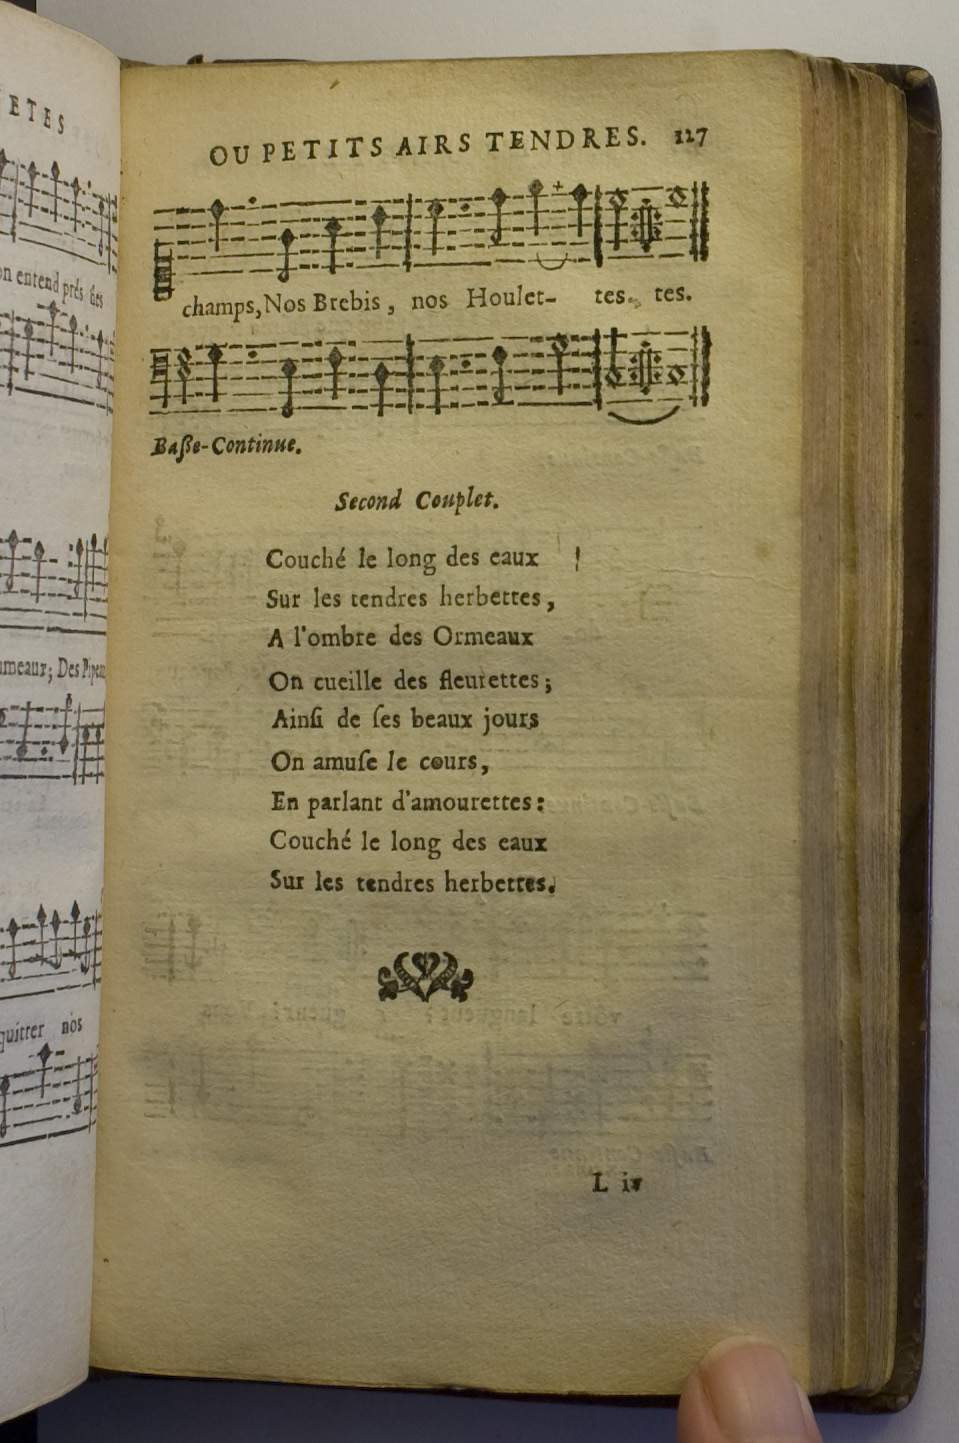 ETES
on entend prés des
umeaux; Des Pipeau
quitter nos
OU PETITS AIRS TENDRES. 127
champs, Nos Brebis, nos Houlet- tes. tes.
Baſſe-Continue.
Second Couplet.
Couché le long des eaux !
Sur les tendres herbettes,
A l'ombre des Ormeaux
On cueille des fleurettes;
Ainſi de ſes beaux jours
On amuſe le cours,
En parlant d'amourettes:
Couché le long des eaux
Sur les tendres herbettes.
L iv